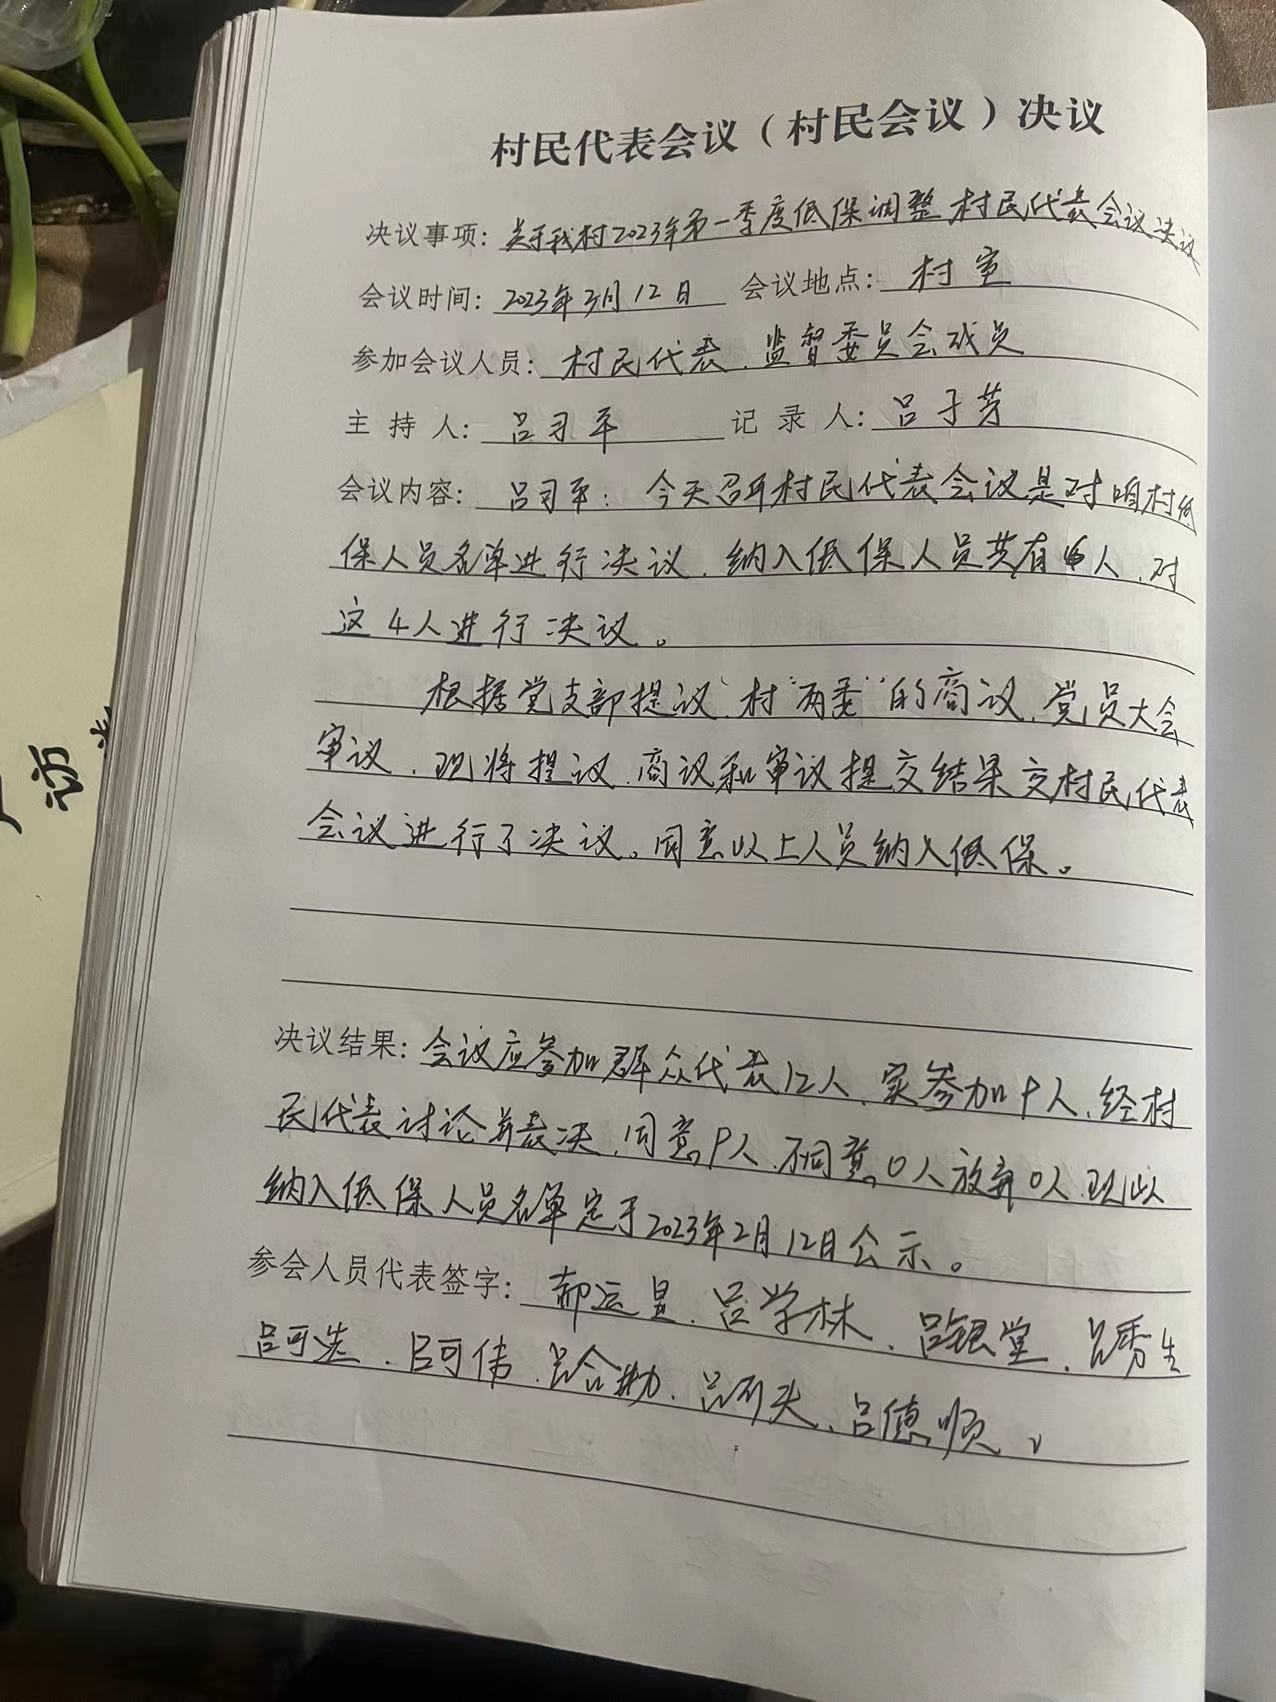 村民代表会议（村民会议）决议
决议事项：关于我村2023年第一季度低保调整村民代表会议决议
会议时间：2023年3月12日 会议地点：村室
参加会议人员：村民代表、监督委员会成员
主持人：吕司平 记录人：吕于芳
会议内容：吕司平：今天召开村民代表会议是对咱村低
保人员名单进行决议、纳入低保人员共有 人、对
这4人进行决议。
根据党支部提议、村"两委"的商议、党员大会
审议、现将提议、商议和审议提交结果交村民代表
会议进行了决议。同意以上人员纳入低保。
决议结果：会议应参加群众代表12人、实参加9人、经村
民代表讨论并表决、同意9人、不同意0人放弃0人、现以
纳入低保人员名单定于2023年2月12日公示。
参会人员代表签字：郝运昌、吕学林、吕银堂、吕秀生
吕可选、吕可伟、吕合勋、吕 夫、吕德顺、
访